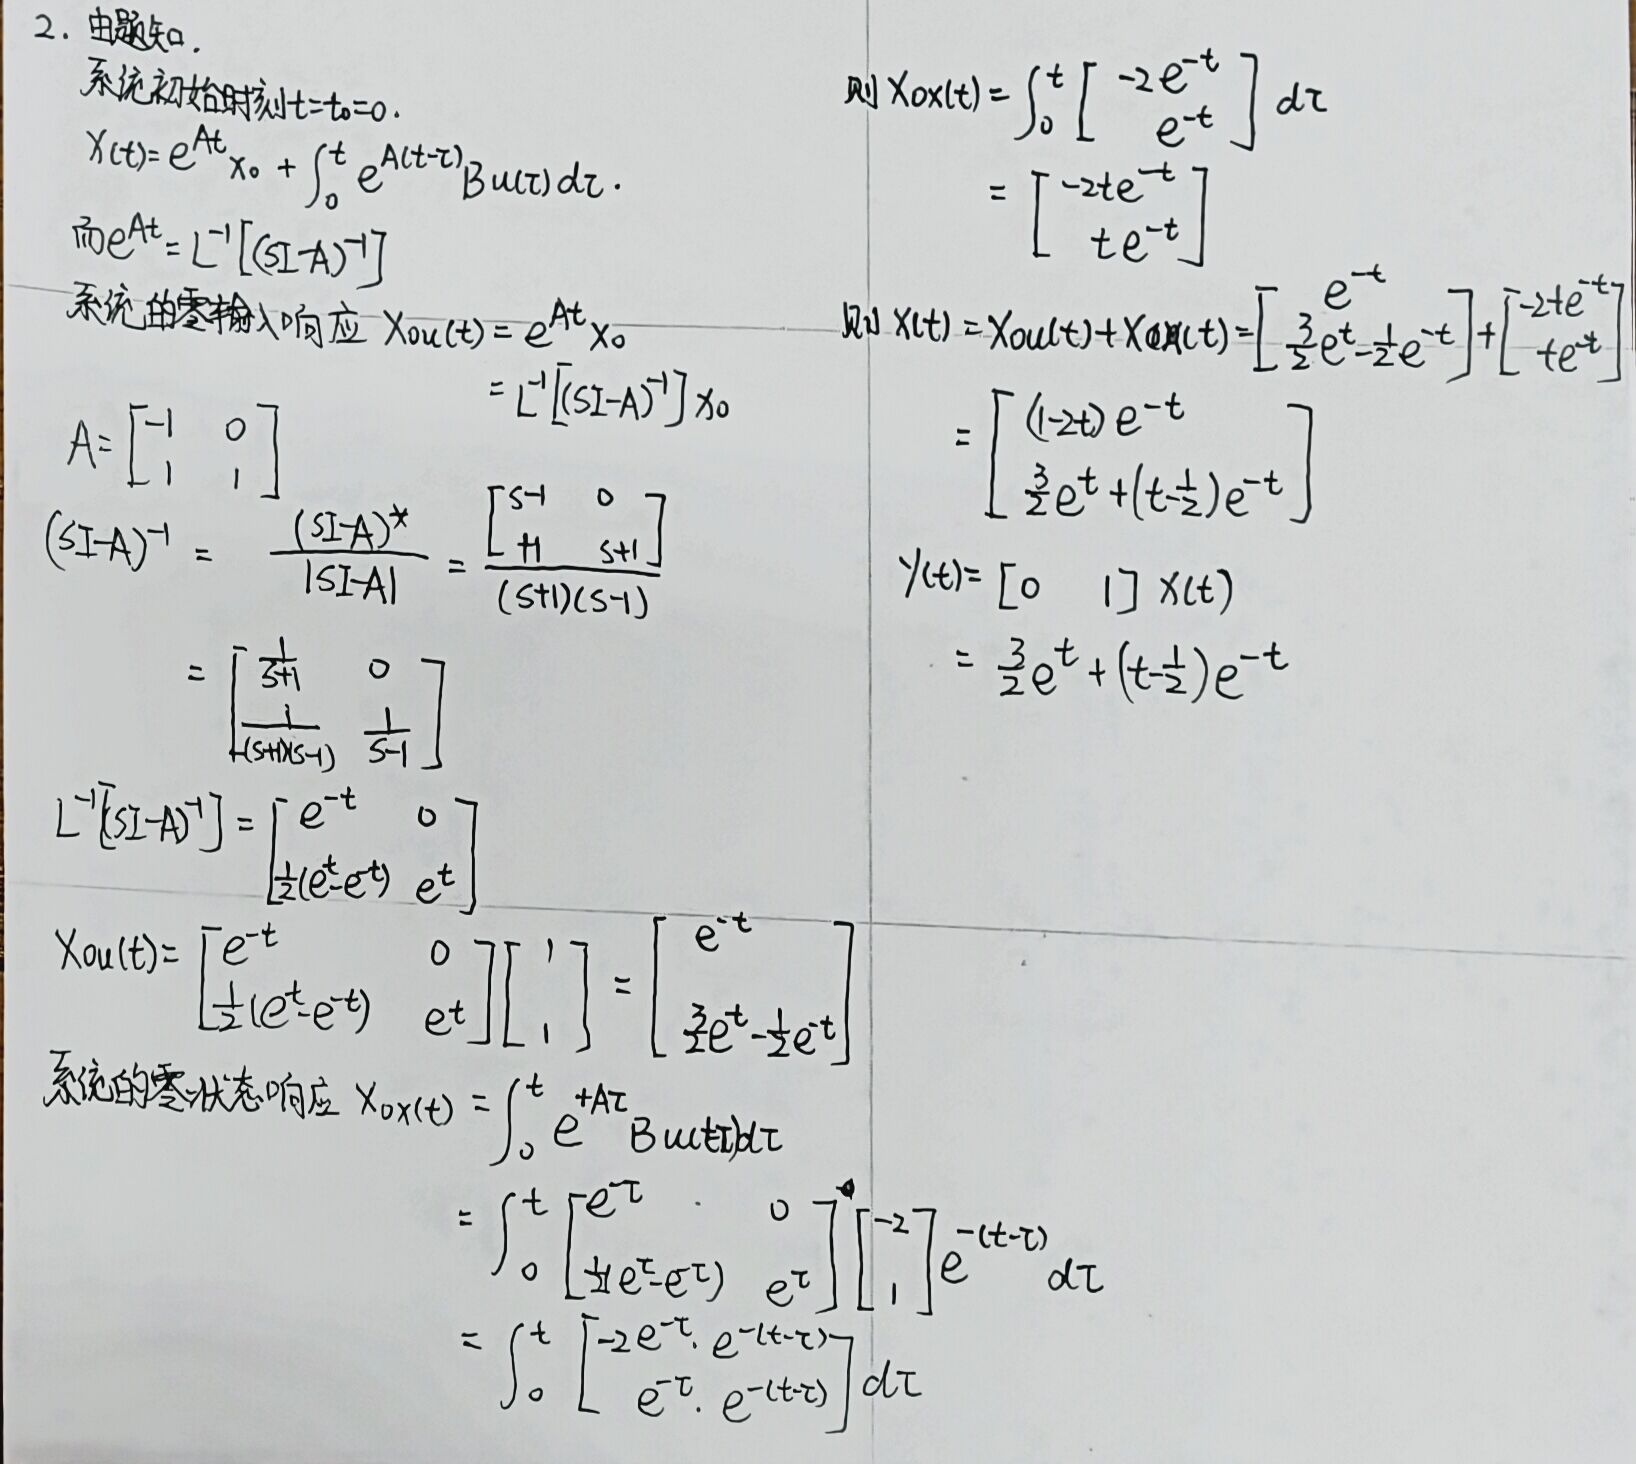 2. 由题知.
系统初始时刻t=t₀=0.
X(t)=e^{At}x₀+∫₀^t e^{A(t-τ)}Bu(τ)dτ.
而e^{At}=L⁻¹[(SI-A)⁻¹]
系统的零输入响应 X₀u(t)=e^{At}x₀
=L⁻¹[(SI-A)⁻¹]x₀
A=[-1 0; 1 1]
(SI-A)⁻¹ = (SI-A)*/|SI-A| = [s-1 0; +1 s+1]/((s+1)(s-1))
=[1/(s+1) 0; 1/((s+1)(s-1)) 1/(s-1)]
L⁻¹[(SI-A)⁻¹]=[e^{-t} 0; ½(e^t-e^{-t}) e^t]
X₀u(t)=[e^{-t} 0; ½(e^t-e^{-t}) e^t][1; 1]=[e^{-t}; 3/2e^t-½e^{-t}]
系统的零状态响应 X₀x(t)=∫₀^t e^{+Aτ}Bu(t-τ)dτ
=∫₀^t [e^{-τ} 0; ½(e^τ-e^{-τ}) e^τ][-2; 1]e^{-(t-τ)}dτ
=∫₀^t [-2e^{-τ}·e^{-(t-τ)}; e^{-τ}·e^{-(t-τ)}]dτ
则X₀x(t)=∫₀^t [-2e^{-t}; e^{-t}]dτ
=[-2te^{-t}; te^{-t}]
则X(t)=X₀u(t)+X₀x(t)=[e^{-t}; 3/2e^t-½e^{-t}]+[-2te^{-t}; te^{-t}]
=[(1-2t)e^{-t}; 3/2e^t+(t-½)e^{-t}]
y(t)=[0 1]X(t)
=3/2e^t+(t-½)e^{-t}